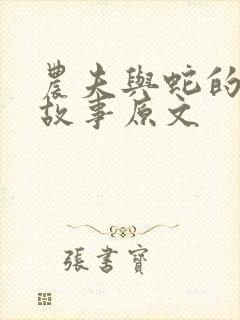 農夫與蛇的
故事原文
張書寶